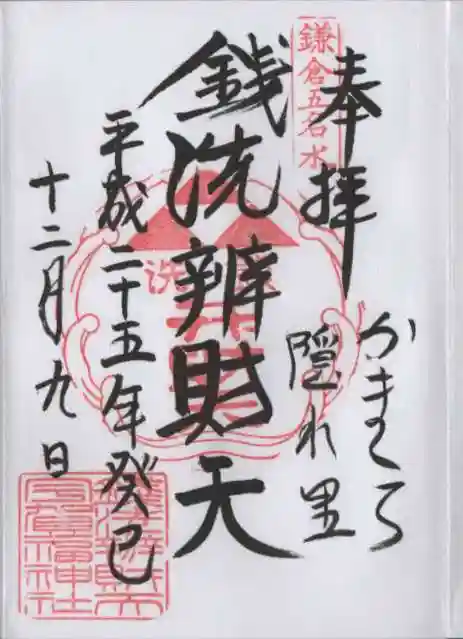 奉拝
かまくら
隠れ里
鎌倉五名水
銭洗辨財天
平成二十五年癸巳
十二月九日